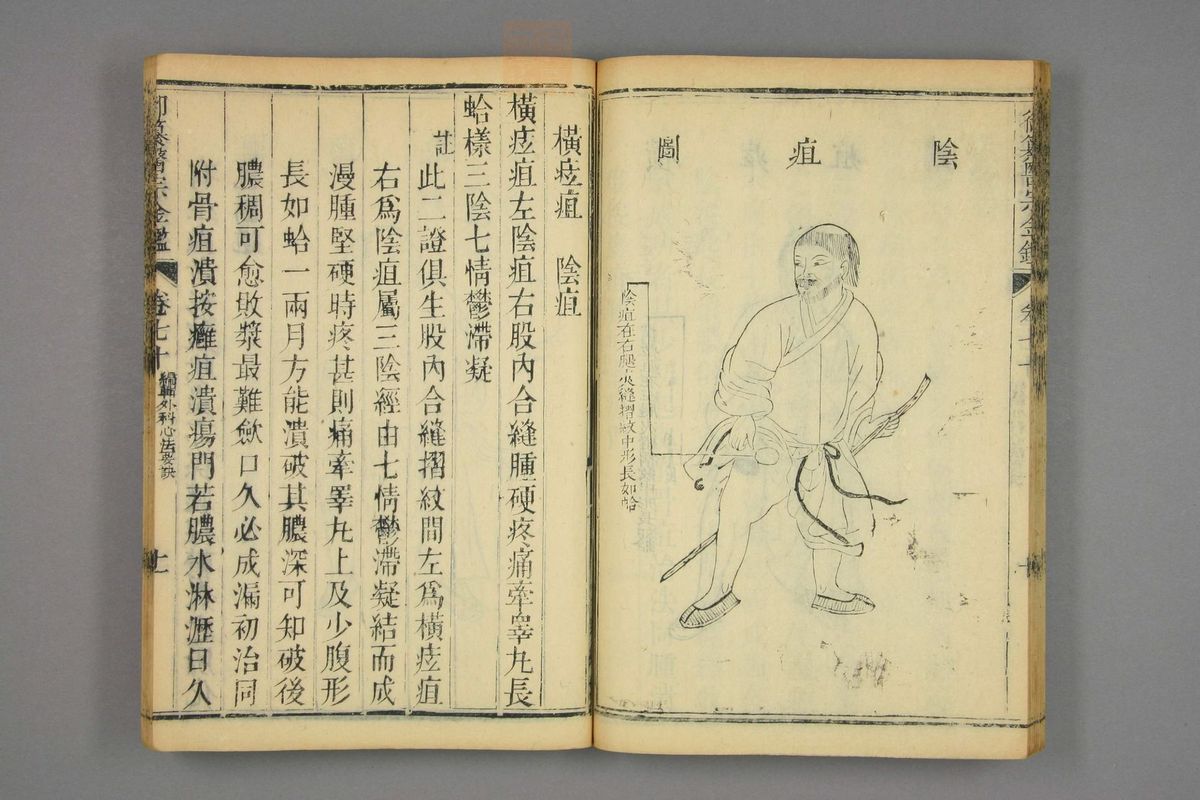 陰疽圖
陰疽在右腿夾縫摺紋中形長如蛤
橫痃疽　陰疽
橫痃疽左陰疽右股內合縫腫硬疼痛牽睾丸長
蛤樣三陰七情鬱滯凝
註此二證俱生股內合縫摺紋間左爲橫痃疽
右爲陰疽屬三陰經由七情鬱滯凝結而成
漫腫堅硬時疼甚則痛牽睪丸上及少腹形
長如蛤一兩月方能潰破其膿深可知破後
膿稠可愈敗漿最難歛口久必成漏初治同
附骨疽潰按癰疽潰瘍門若膿水淋瀝日久
卷七十
編輯外科心法要訣
十一